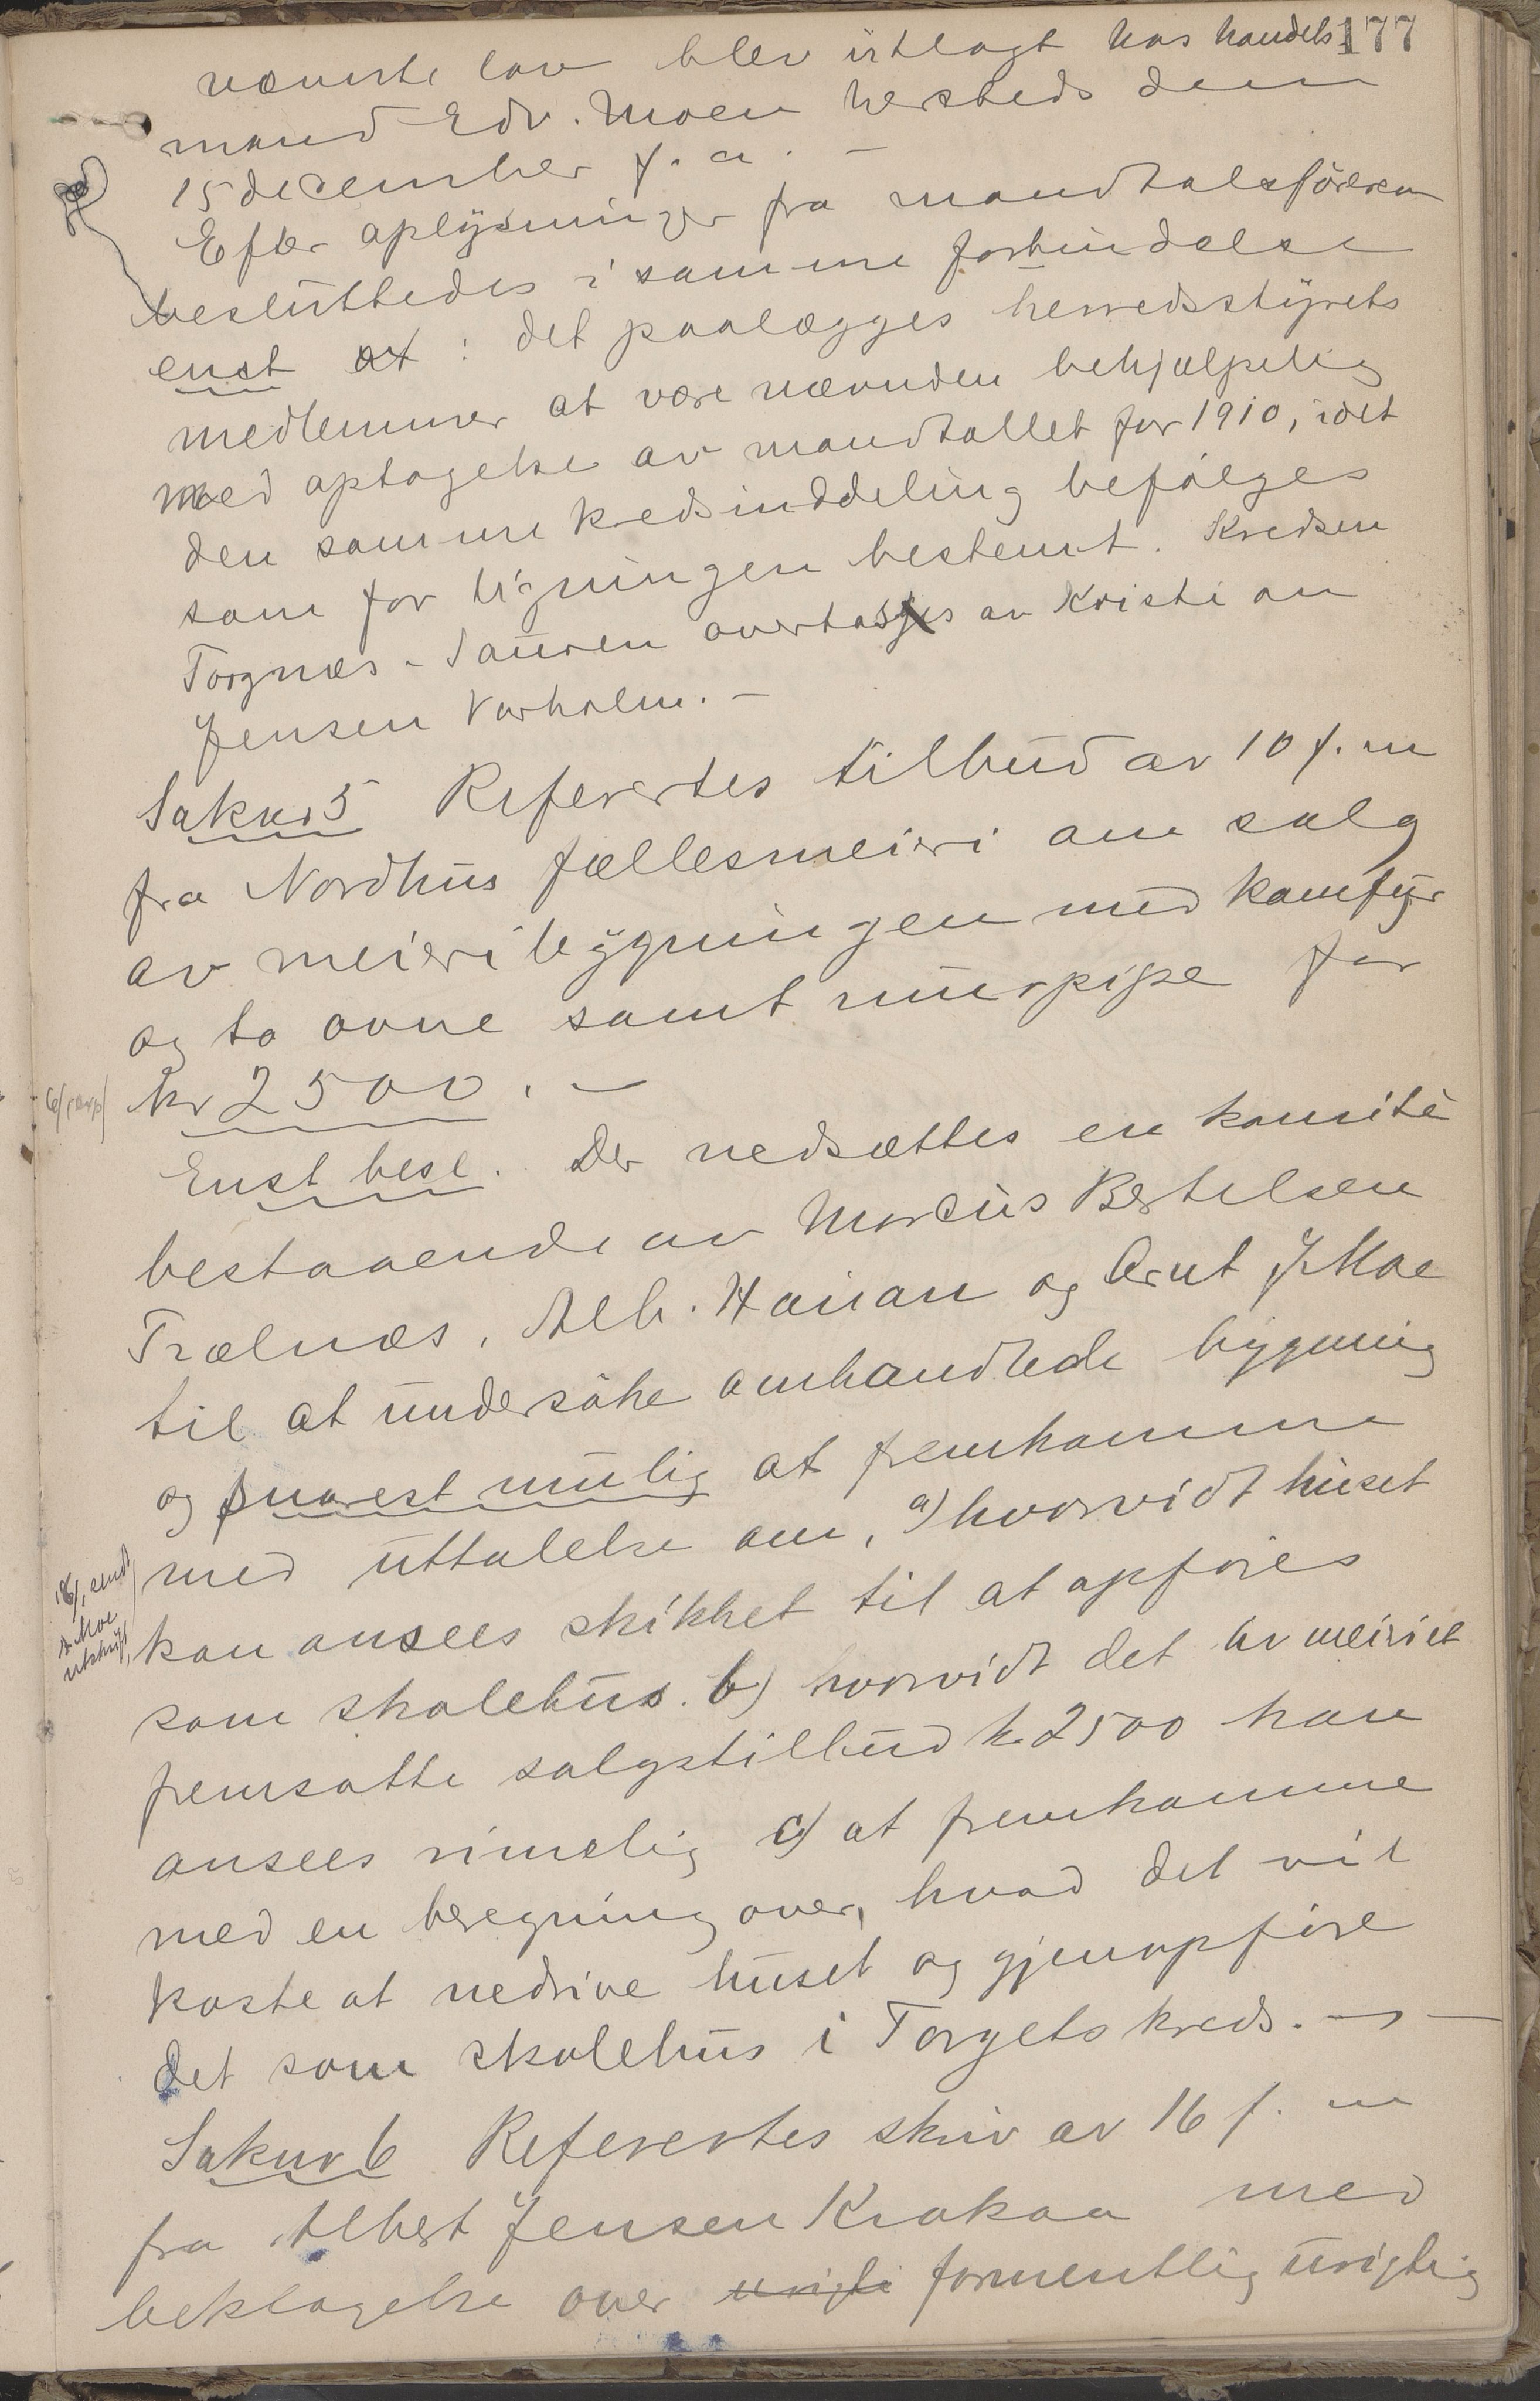 177
nævnte lov blev utlagt hos handels
mand Edv. Moen hersteds den
15 december f. a. –
Efter oplysninger fra mandtalsföreren
besluttedes i samme forbindelse
enst at : det paalægges herredsstyrets
medlemmer at være nævnden behjælpelig
med optagelse av mandtallet for 1910, idet
den samme kredsinddeling befölges
som for ligningen bestemt. Kredsen
Torgnes - Sauren overtas av Kristian
Jensen Vorholm. –
Sak nr 5 Referertes tilbud av 10 f. m
fra Nordhus fællesmeieri om salg
av meieribygningen med komfyr
og to ovne samt murpipe for
kr 2500. –
Enst besl. Der nedsættes en komité
bestaaende av Morcus Bertelsen
Trælnes, Alb. Hauan og Arnt J Moe
til at undersöke omhandlede bygning
og snarest mulig at fremkomme
med uttalelse om, a) hvorvidt huset
kan ansees skikket til at opföres
som skolehus. b) hvorvidt det av meieriet
fremsatte salgstilbud kr 2500 kan
ansees rimelig c) at fremkomme
med en beregning over, hvad det vil
koste at nedrive huset og gjenopföre
det som skolehus i Torgets kreds. –
Sak nr 6 Referertes skriv av 16 f. m
fra Albert Jensen Krokaa med
beklagelse over urigti formentlig urigtig
sendt
A Moe
utskrift